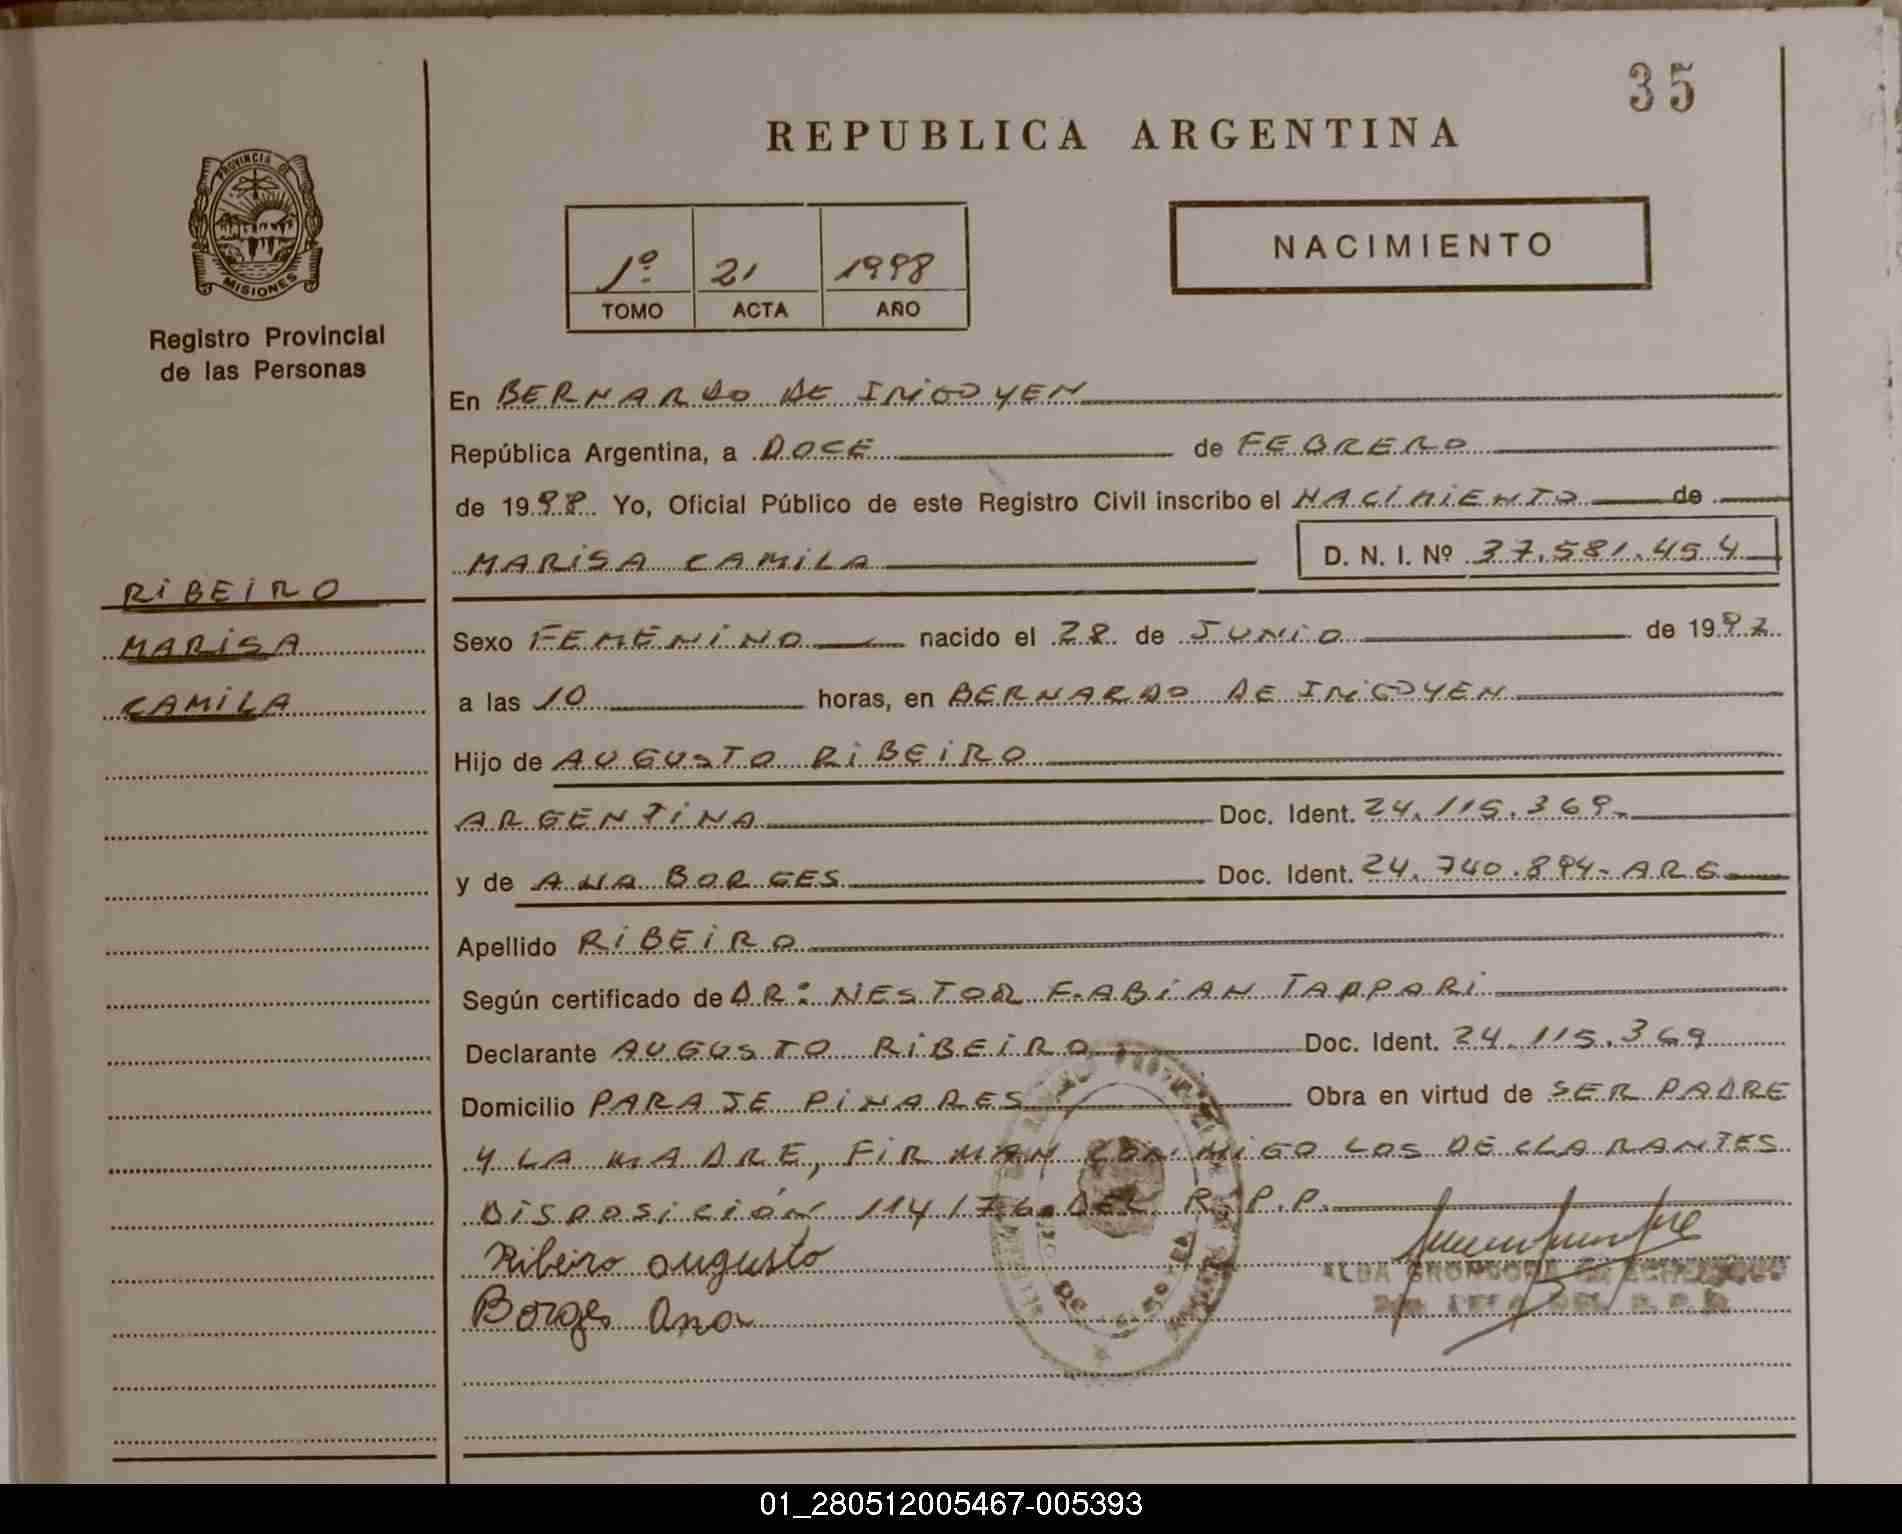 35
REPUBLICA ARGENTINA
PROVINCIA DE
MISIONES
Registro Provincial
de las Personas
1º 21 1998
TOMO ACTA AÑO
NACIMIENTO
En BERNARDO DE IRIGOYEN
República Argentina, a DOCE de FEBRERO
de 1998. Yo, Oficial Público de este Registro Civil inscribo el NACIMIENTO de
MARISA CAMILA D. N. I. Nº 37.581.454
RIBEIRO
MARISA
CAMILA
Sexo FEMENINO nacido el 28 de JUNIO de 1997
a las 10 horas, en BERNARDO DE IRIGOYEN
Hijo de AUGUSTO RIBEIRO
ARGENTINA Doc. Ident. 24.115.369-
y de ANA BORGES Doc. Ident. 24.740.894- ARG
Apellido RIBEIRO
Según certificado de DR: NESTOR FABIAN TAPPARI
Declarante AUGUSTO RIBEIRO Doc. Ident. 24.115.369
Domicilio PARAJE PINARES Obra en virtud de SER PADRE
Y LA MADRE, FIRMAN CONMIGO LOS DECLARANTES
DISPOSICIÓN 114/76. DEL R.P.P.
Ribeiro augusto
Borges Ana
ALBA
DEL R. P. P.
01_280512005467-005393